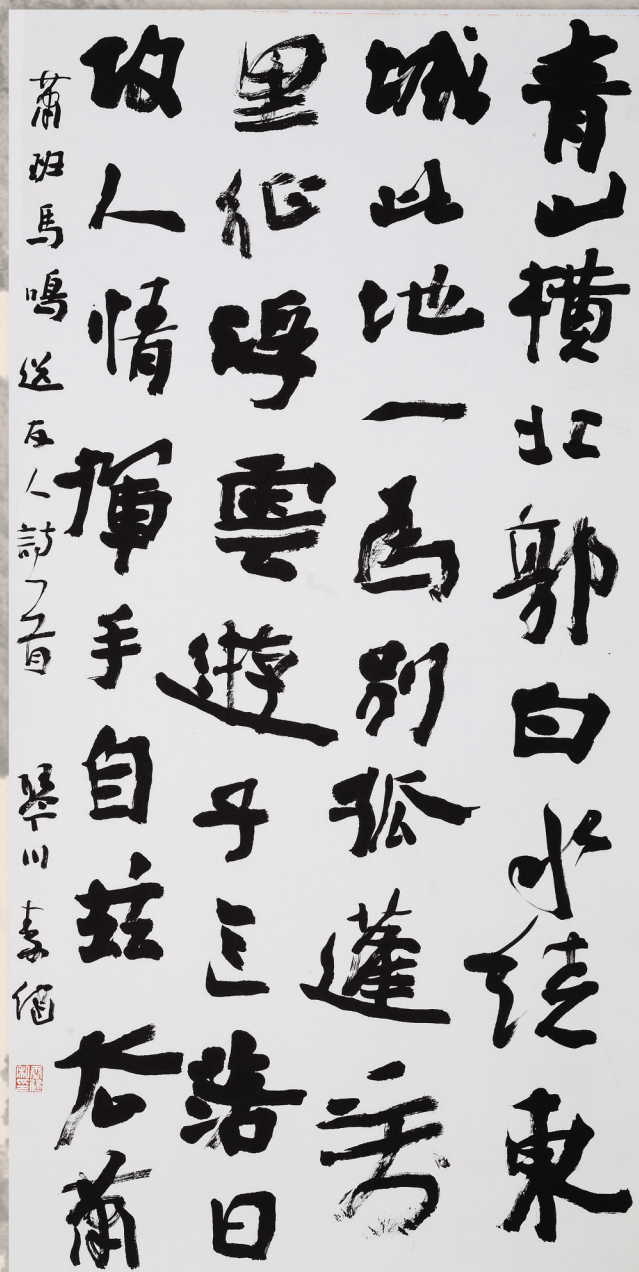 青山橫北郭白水繞東
城此地一為別孤蓬萬
里征浮雲遊子意落日
故人情揮手自茲去蕭
蕭班馬鳴 送友人詩一首 琴川